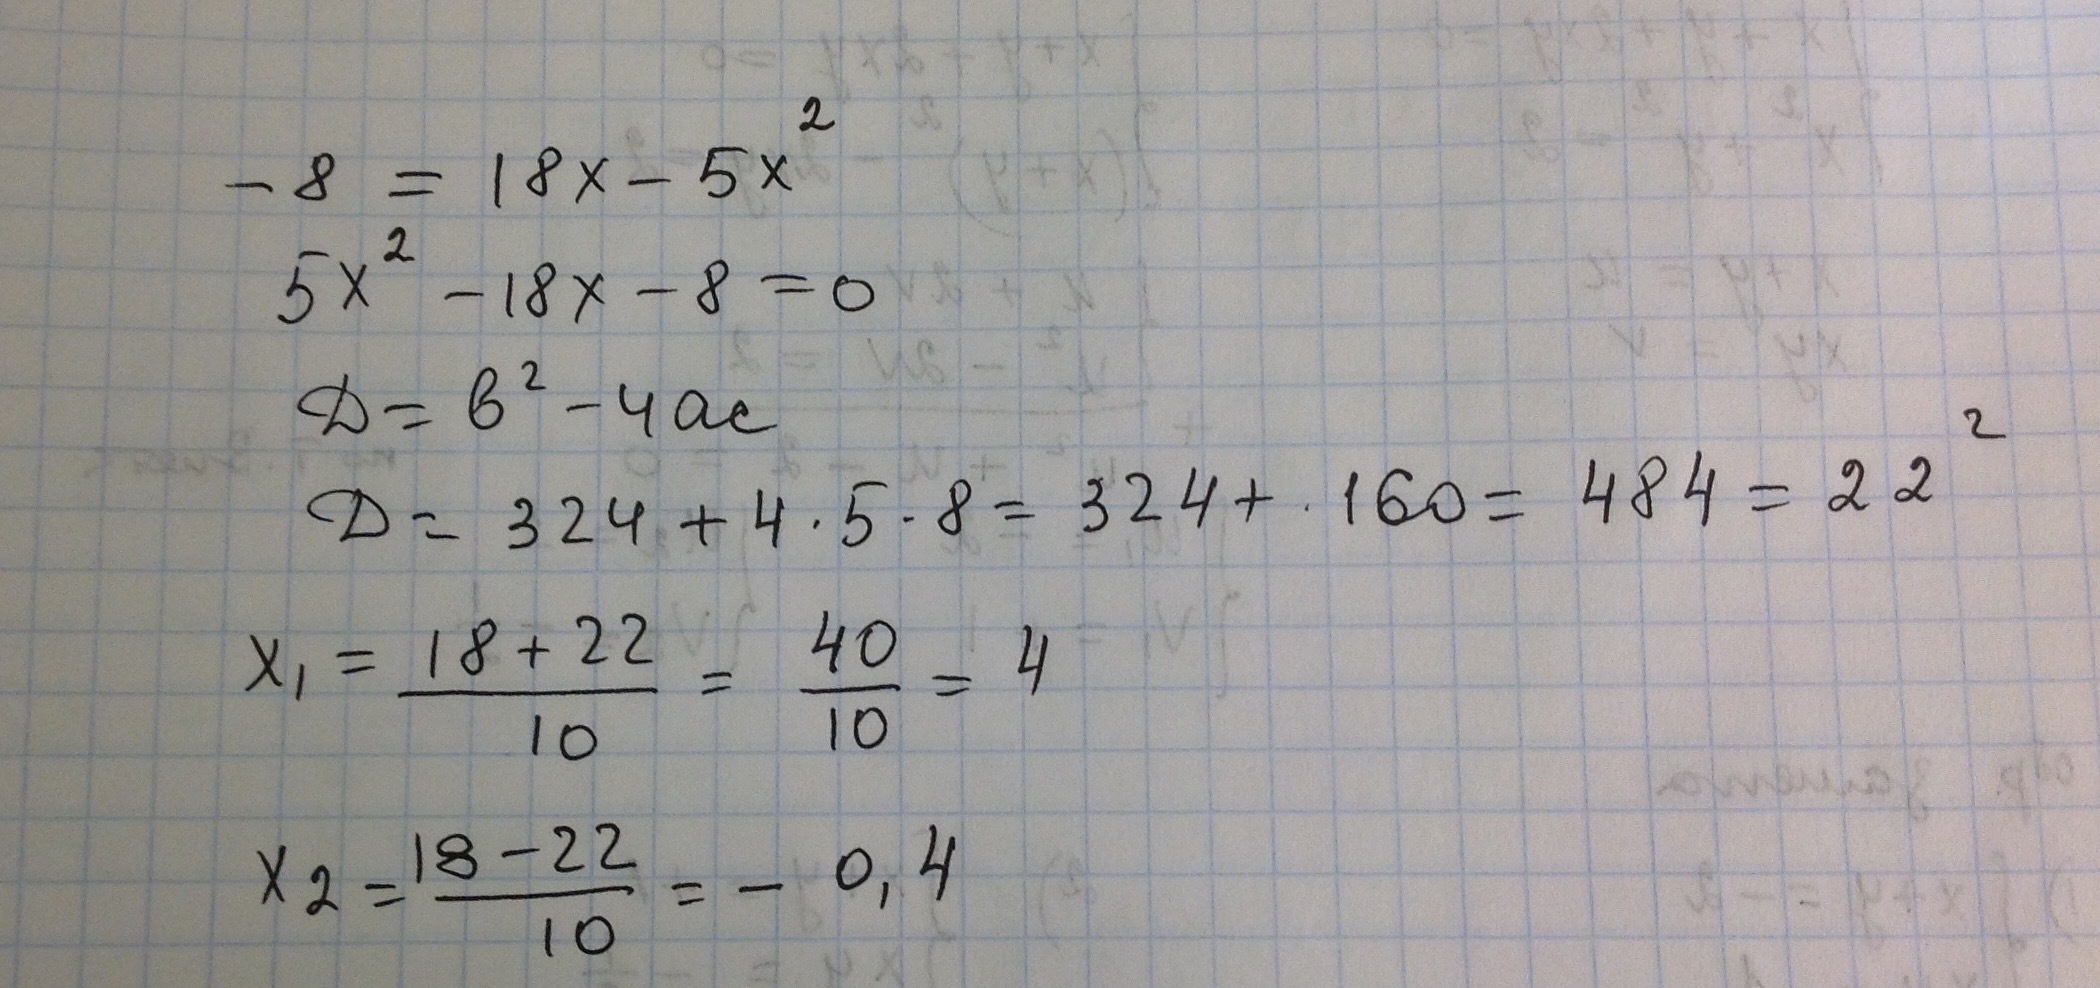 -8 = 18x - 5x²
5x² - 18x - 8 = 0
D = b² - 4ac
D = 324 + 4 · 5 · 8 = 324 + · 160 = 484 = 22²
x₁ = (18 + 22)/10 = 40/10 = 4
x₂ = (18 - 22)/10 = - 0,4